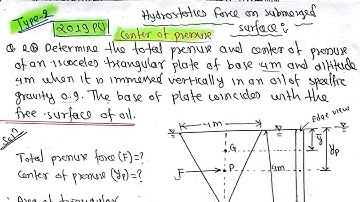 Type-2
2019 PU
Hydrostatics Force on submerged
surface :
Center of pressure
Q. 2Q Determine the total pressure and center of pressure
of an isosceles triangular plate of base 4m and altitude
4m when it is immersed vertically in an oil of specific
gravity 0.9. The base of plate coincides with the
free surface of oil.
Soln
Total pressure force (F) = ?
Center of pressure (yp) = ?
: Area of triangular
4m
edge view
G
F
P
4m
ȳ
yp